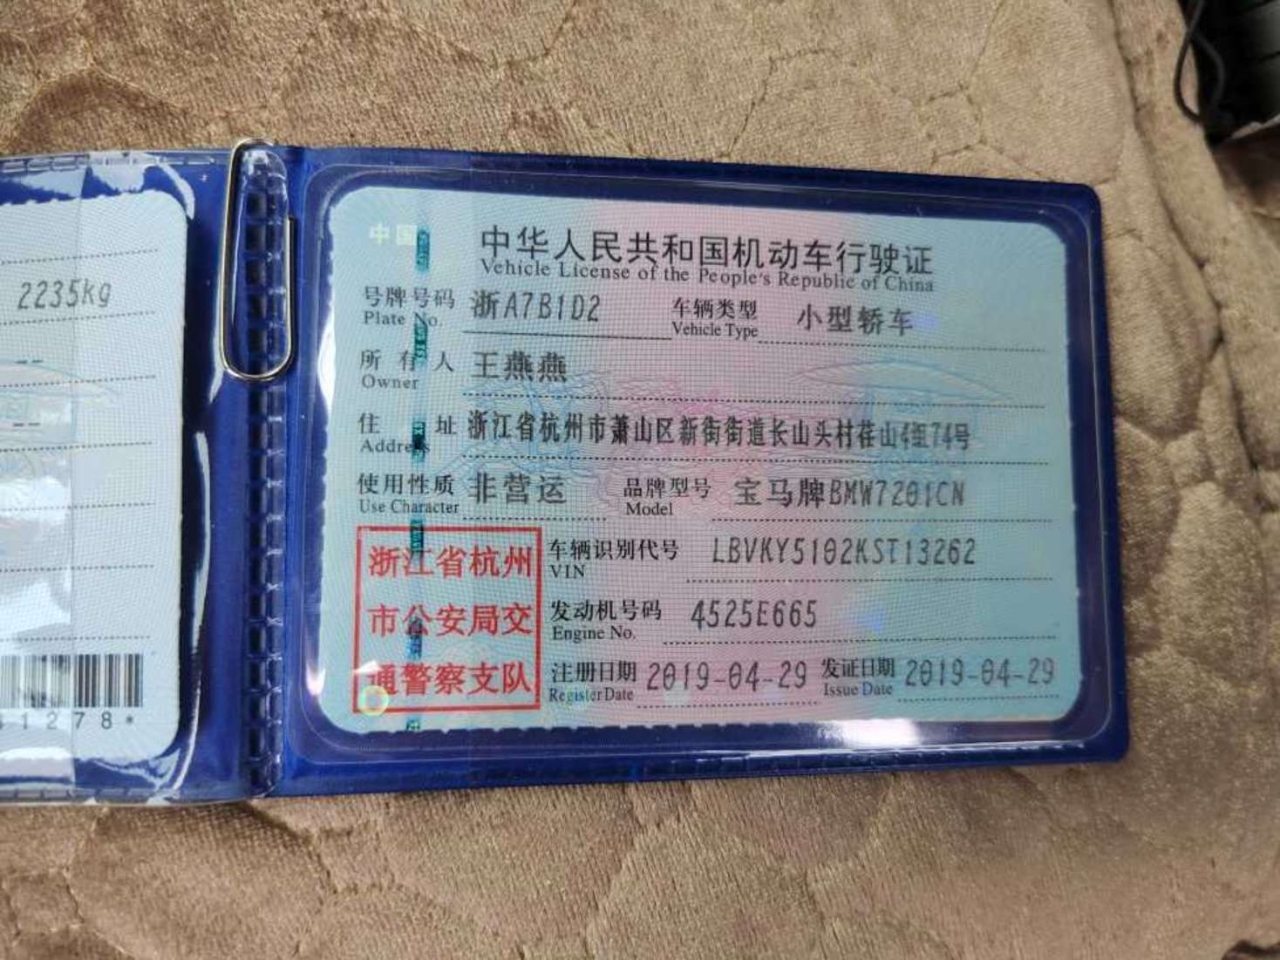 2235kg
--
--
1278*
中国
中华人民共和国机动车行驶证
Vehicle License of the People's Republic of China
号牌号码 浙A7B1D2 车辆类型 小型轿车
Plate No. Vehicle Type
所有人 王燕燕
Owner
住址 浙江省杭州市萧山区新街街道长山头村荏山4组74号
Address
使用性质 非营运 品牌型号 宝马牌BMW7201CN
Use Character Model
浙江省杭州
市公安局交
通警察支队
车辆识别代号 LBVKY5102KST13262
VIN
发动机号码 4525E665
Engine No.
注册日期 2019-04-29 发证日期 2019-04-29
Register Date Issue Date